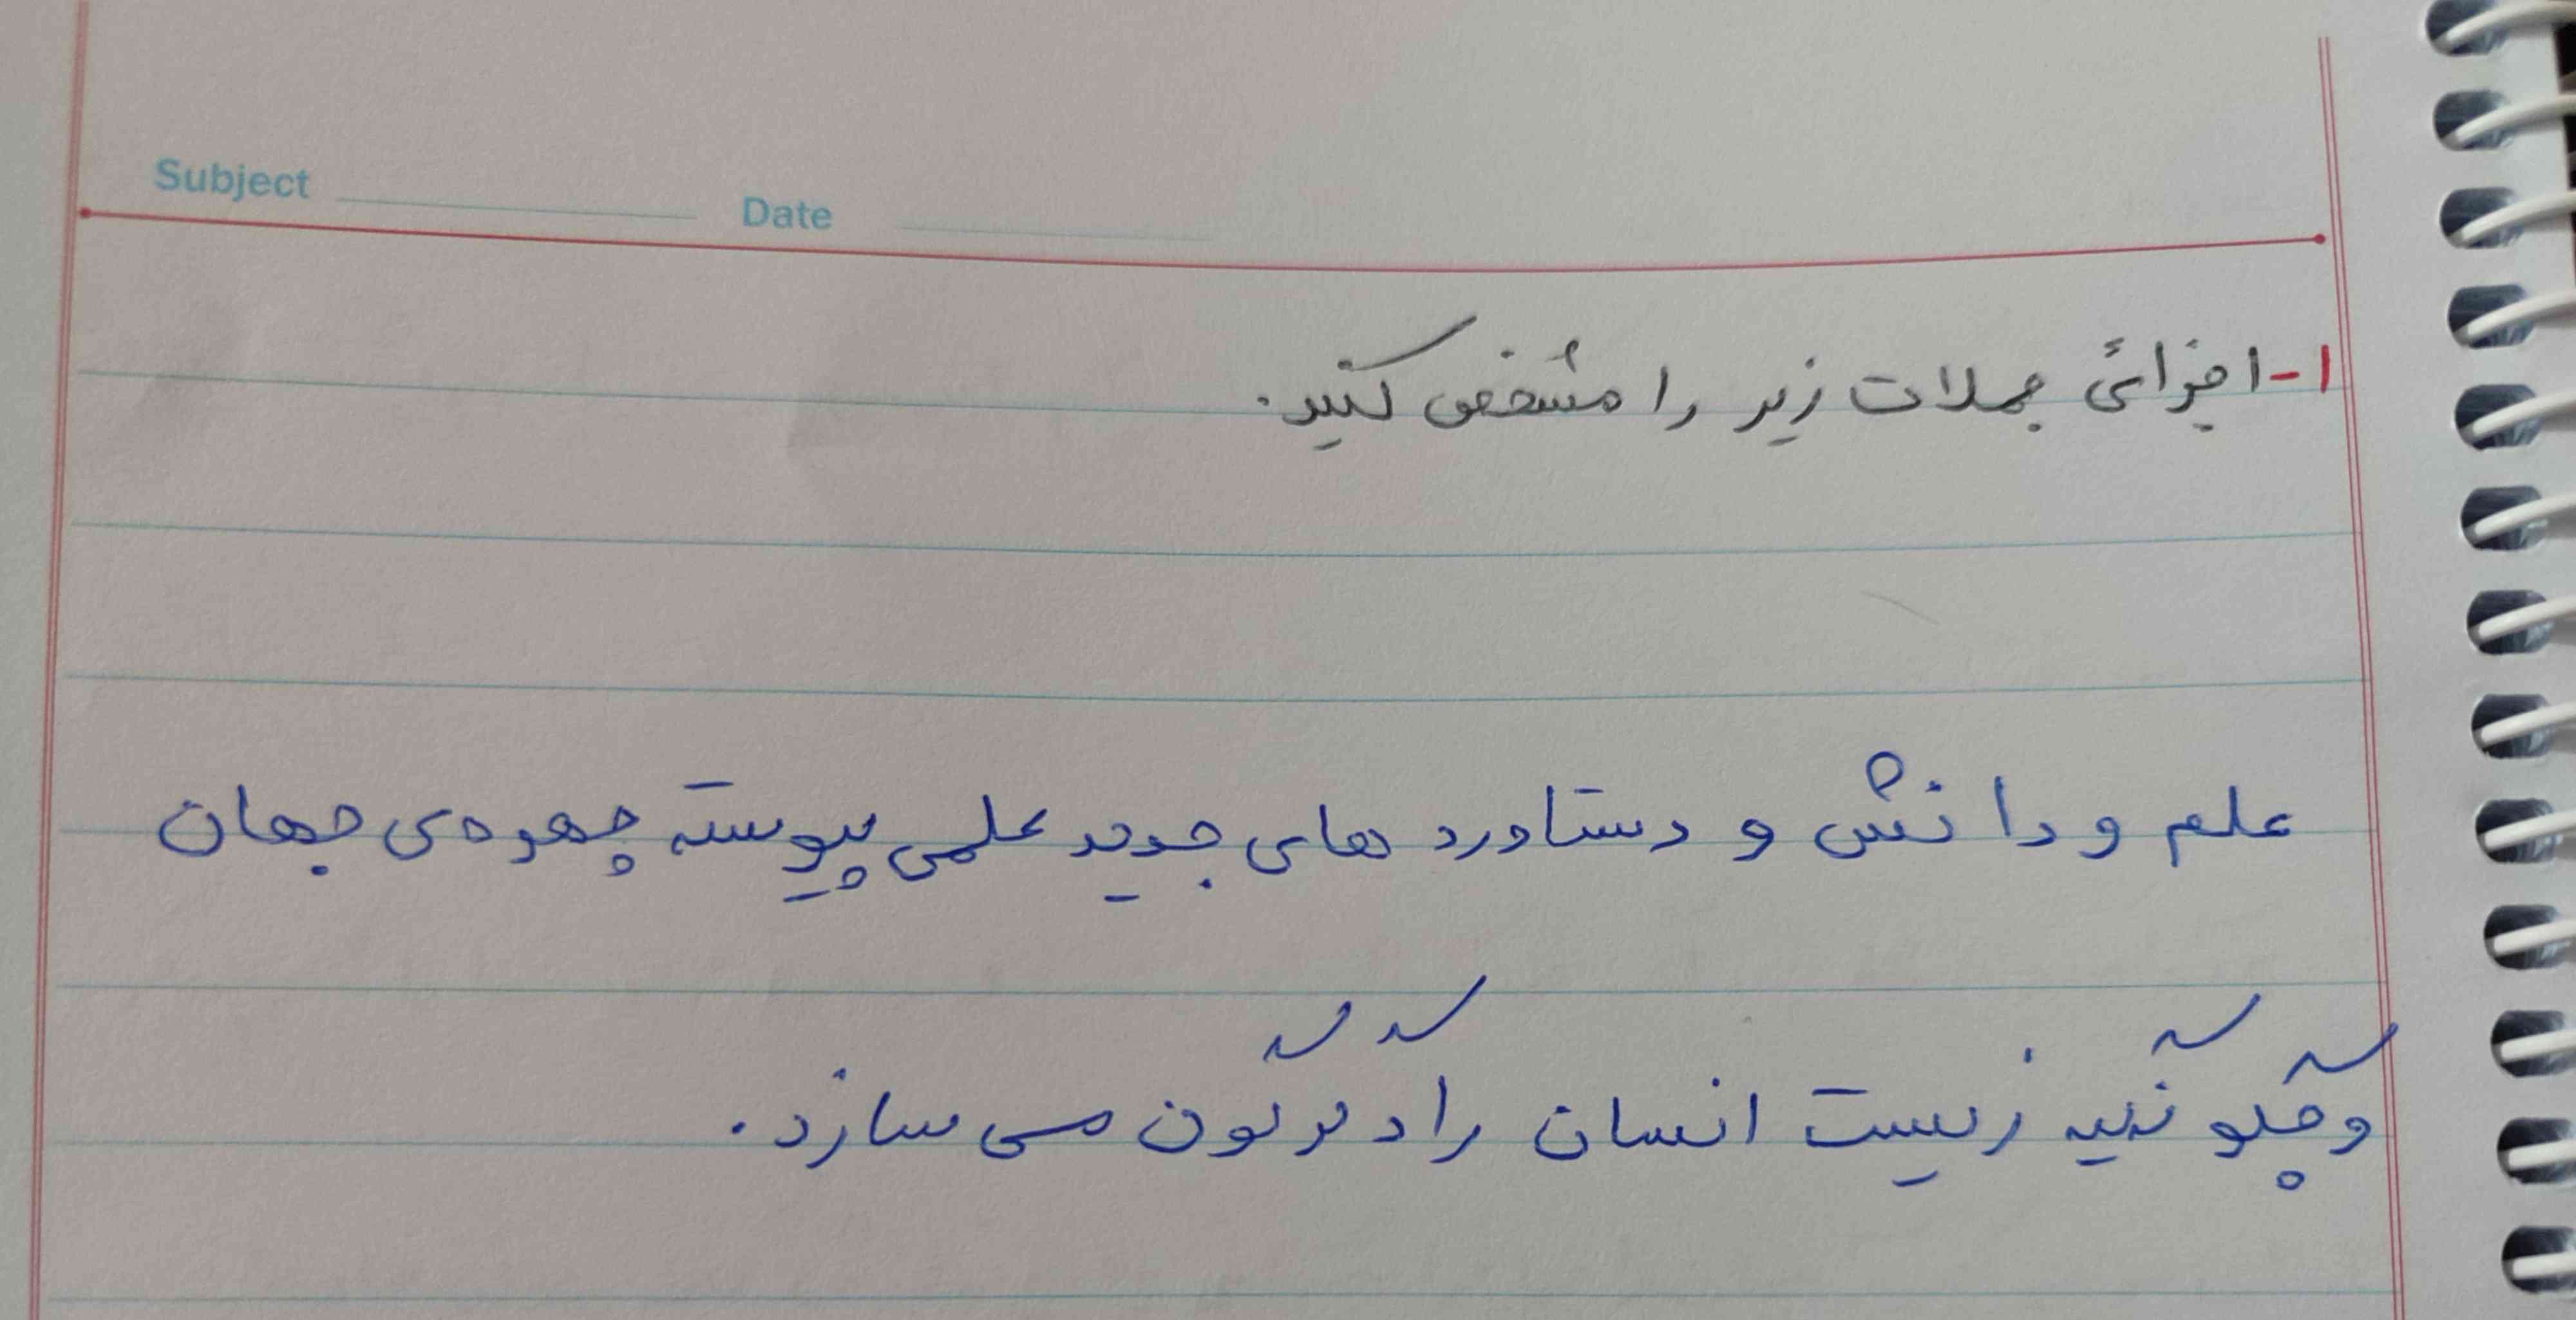 Subject
Date
۱-اجزائ جملات زیر را مشخص کنید.
علم و دانش و دستاورد های جدید علمی پیوسته چهره‌ی جهان
و چگونگی زیست انسان را دگرگون می سازد.